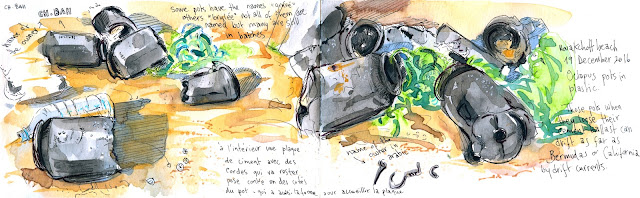 CH. BAH
CH. BAH
name of
owner
Some pots have the names "grave"
others "brûlée" not all of them are
named but many are still
in habines
à l'intérieur une plaque
de ciment avec des
cordes qui va rester
posé contre un des cotés
du pot - qui a aussi la forme pour accueillir la plaque
name of
owner in
arabic
Nouakchott beach
19 December 2016
Octopus pots in
plastic
these pots when
they lose their
cement ballast can
drift as far as
Bermudas or California
by drift currents.